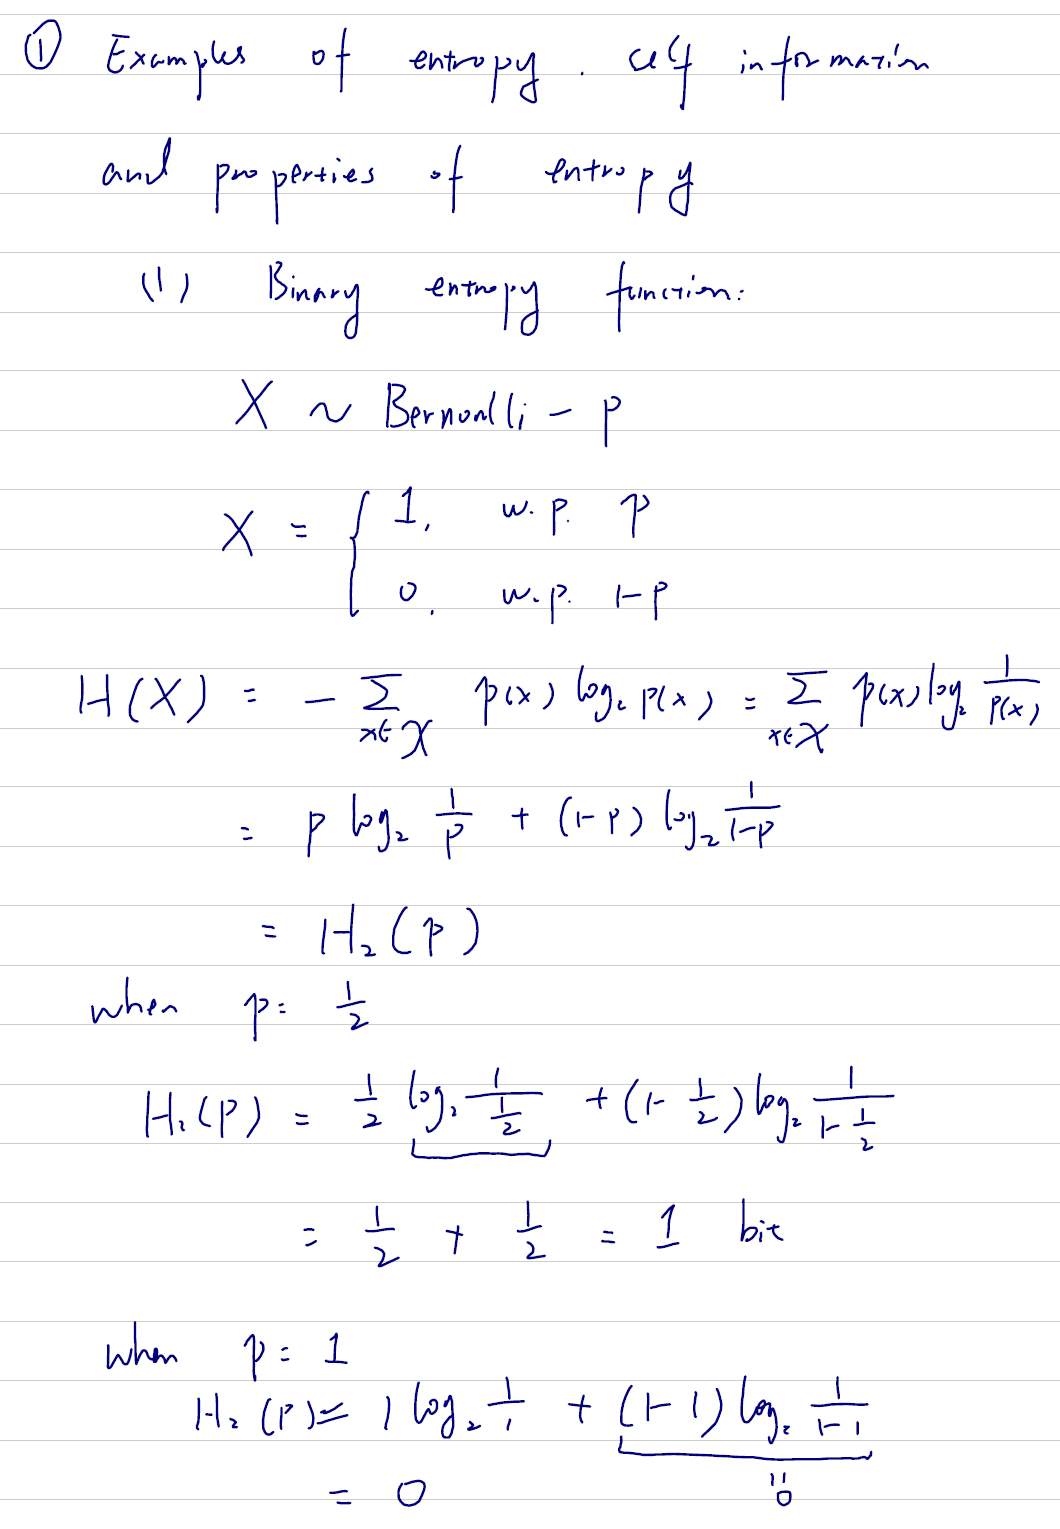 ① Examples of entropy. self information
and properties of entropy
(1) Binary entropy function:
X ~ Bernoulli - p
X = { 1, w.p. p
0, w.p. 1-p
H(X) = - ∑_{x∈𝒳} p(x) log₂ p(x) = ∑_{x∈𝒳} p(x) log₂ 1/p(x)
= p log₂ 1/p + (1-p) log₂ 1/(1-p)
= H₂(p)
when p = 1/2
H₂(p) = 1/2 log₂ 1/(1/2) + (1- 1/2) log₂ 1/(1-1/2)
= 1/2 + 1/2 = 1 bit
when p = 1
H₂(p) = 1 log₂ 1/1 + (1-1) log₂ 1/(1-1)
= 0 = 0